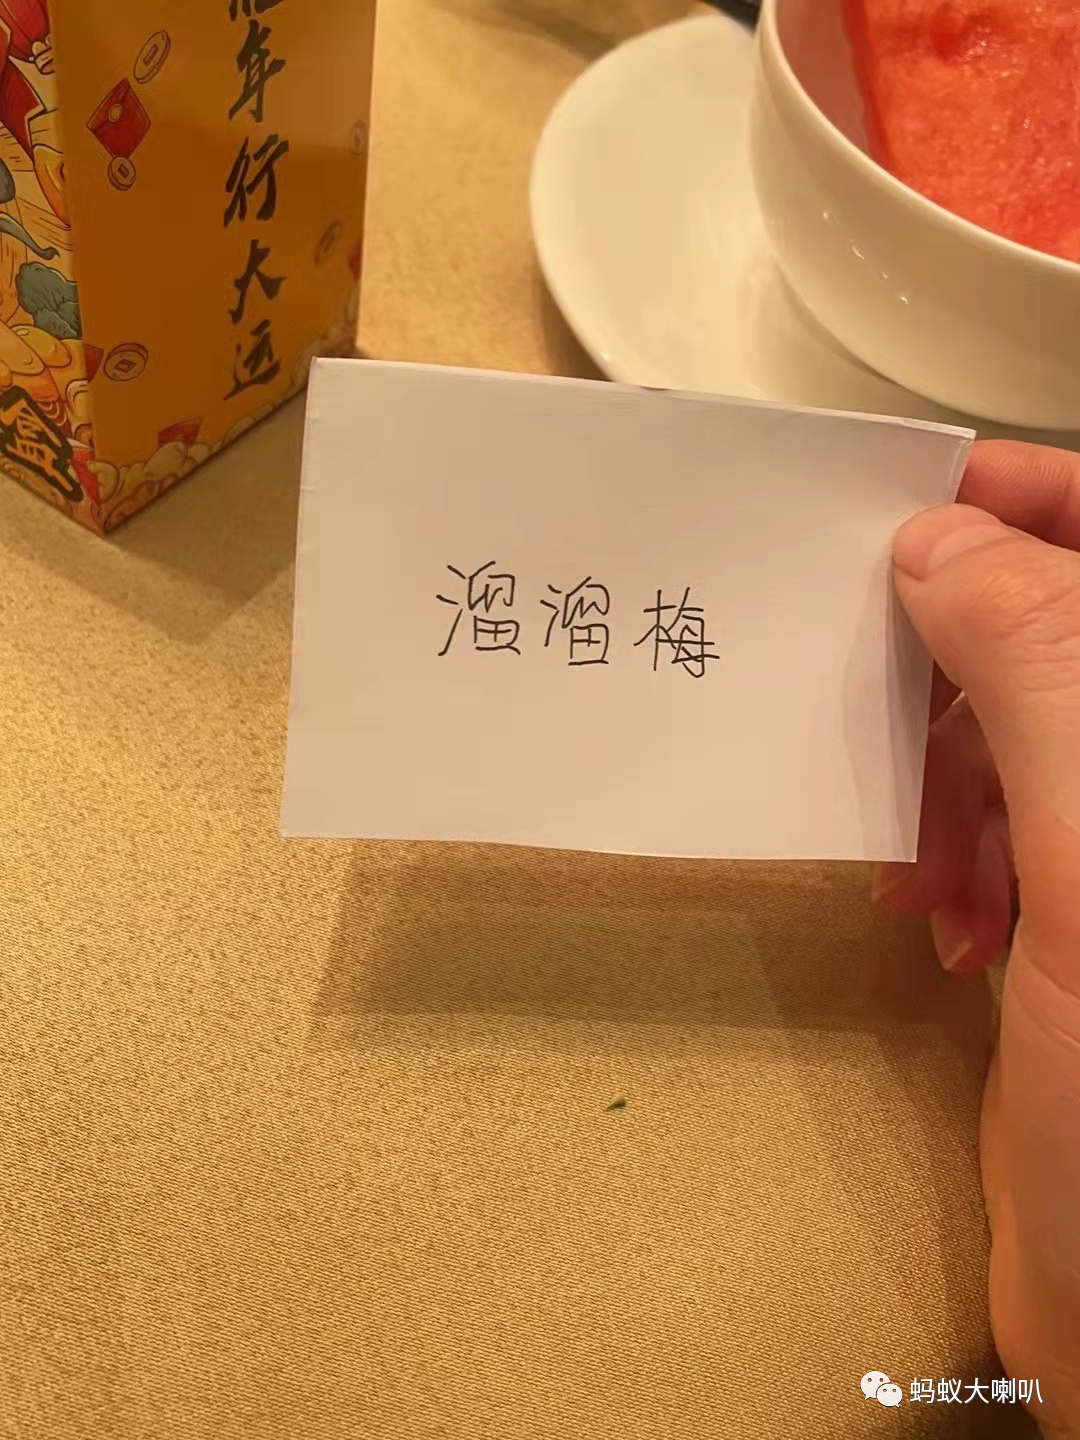 年行大运
溜溜梅
蚂蚁大喇叭